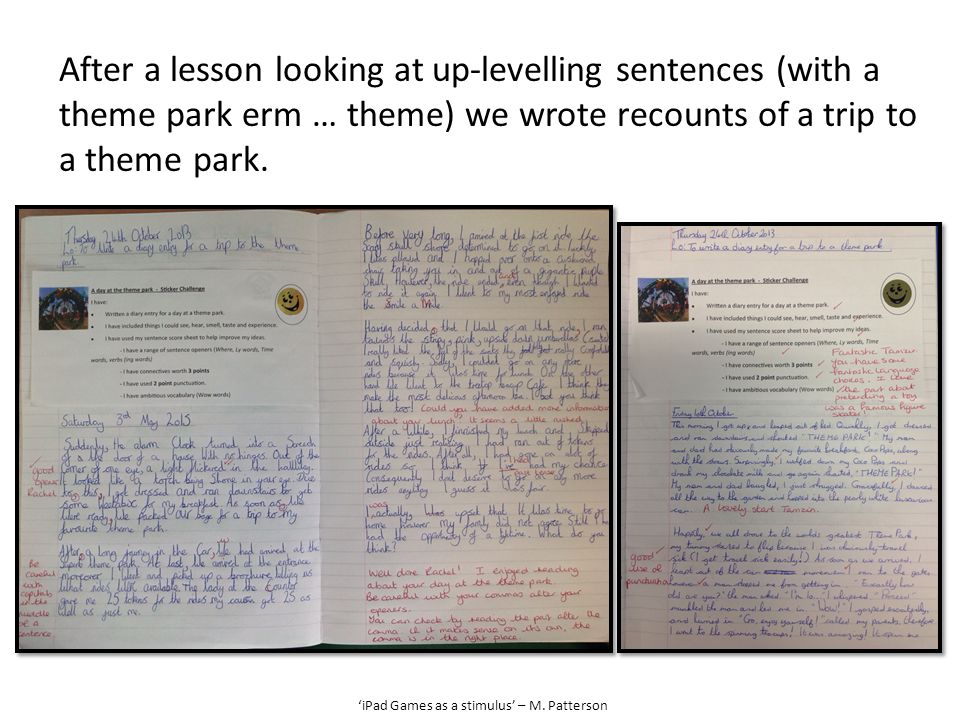 After a lesson looking at up-levelling sentences (with a
theme park erm … theme) we wrote recounts of a trip to
a theme park.
Thursday 24th October 2013
Lo: To write a diary entry for a trip to the theme
park
A day at the theme park - Sticker Challenge
I have:
Written a diary entry for a day at a theme park.
I have included things I could see, hear, smell, taste and experience.
I have used my sentence score sheet to help improve my ideas.
- I have a range of sentence openers (Where, Ly words, Time
words, verbs (ing words)
- I have connectives worth 3 points
- I have used 2 point punctuation.
- I have ambitious vocabulary (Wow words)
Saturday 3rd May 2015
Suddenly, the alarm clock turned into a
of a the door of a house with no hinges. Out of the
corner of one eye, a light flickered in the hallway.
It looked like a torch being shone in your eye. Due
to this, I got dressed and ran downstairs to get
some for my breakfast. As soon as we
were ready, we packed our bags for a trip to my
favourite theme park.
good
opener
Rachel
After a long journey in the car, we had arrived at the
theme park. At last, we arrived at the entrance
moreover I went and picked up a brochure telling us
what rides were available. The lady at the counter
gave me 25 tokens for the rides my got 25 as
well as just me.
Be
careful
with
capitals
in the
middle
of a
sentence.
Before very long, I arrived at the first ride, the
determined to go on it luckily
I was allowed and I hopped over onto a
taking you in and out of a gigantic purple
skull, However, the ride ended, even though I wanted
to ride it again I went to my most enjoyed ride
the
Having decided that I would go on that ride, I ran
towards the pink, upside down umbrellas
I really liked the feel of the seats they felt really comfortable
and squishy. Sadly, I couldn't go on any more
rides because it was time for lunch. On the other
hand we went to the Cafe. I think they
make the most delicious afternoon tea. I bet you think
that too! Could you have added more information
about your lunch? It seems a little rushed.
After a while, I finished my lunch and I stepped
outside just realising I had ran out of tokens
for the rides. After all, I had gone on alot of
rides so I think I've had my chance
Consequently I dont deserve to go on any more
rides anyway I guess it was fair.
was
upset that it was time to go
home however my family did not agree. Still I
had the opportunity of a lifetime. What do you
think?
Well done Rachel! I enjoyed reading
about your day at the theme park.
Be careful with your commas after your
openers.
You can check by reading the part after the
comma. If it makes sense on its own, the
comma is in the right place.
Thursday 24th October 2013
Lo: To write a diary entry for a trip to a theme park
A day at the theme park - Sticker Challenge
I have:
Written a diary entry for a day at a theme park.
I have included things I could see, hear, smell, taste and experience.
I have used my sentence score sheet to help improve my ideas.
- I have a range of sentence openers (Where, Ly words, Time
words, verbs (ing words)
- I have connectives worth 3 points
- I have used 2 point punctuation.
- I have ambitious vocabulary (Wow words)
Fantastic Tamzin.
You have some
fantastic language
choices. I love
the part about
pretending a boy
was a famous figure
skater!
October
This morning I got up and leaped out of bed. Quickly, I got dressed
and ran downstairs and shouted "THEME PARK!" My mum
and dad had obviously made my favourite breakfast, Coco Pops, along
with the straws. Surprisingly, I wolfed down my Coco Pops and
drank my chocolate milk and yet again shouted, "THEME PARK!"
My mum and dad laughed, I just shrugged. Gracefully, I danced
all the way to the garden and hopped into the pearly white
A lovely start Tamzin.
Happily, we all drove to the worlds greatest Theme Park,
my tummy started to flip because I was obviously travel
sick (I get travel sick easily). As soon as we arrived I
leapt out of the car I ran to the gates
a man stopped me from getting in. "Exactly how
old are you?" the man asked. "I'm 10..." I whispered. "Proceed"
mumbled the man and let me in. "Wow!" I gasped
and turned in "Go, enjoy yourself!" called my parents, therefore
I went to the spinning teacups! It was amazing! It spun me
good
use of
punctuation
'iPad Games as a stimulus' – M. Patterson